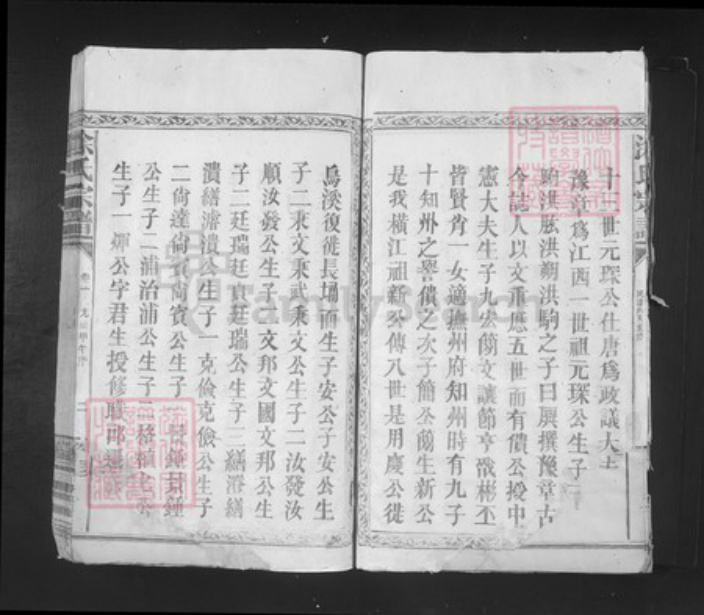 十二世元琛公仕唐爲政議大
豫章爲江西一世祖元琛公生子二
駒洪洪朔洪駒之子曰屓撰豫章古
今誌人以文重應五世而有債公授中
憲大夫生子九宏簡文讓節亨徵彬丕
皆賢肖一女適撫州府知州時有九子
十知州之譽債之次子簡公簡生新公
是我橫江祖新公傳八世是用慶公徙
烏溪復徙長塌而生子安公子安公生
子二秉文秉武秉文公生子二汝發汝
順汝發公生子二文邦文國文邦公生
子二廷瑞廷貴廷瑞公生子二繕濬繕
濆繕濬濆公生子一克儉克儉公生子
二尙達尙賓尙賓公生子二封鍾
公生子二浦治浦公生子二格植公
生子一煇公字君生授修職郎
氏宗譜
卷一